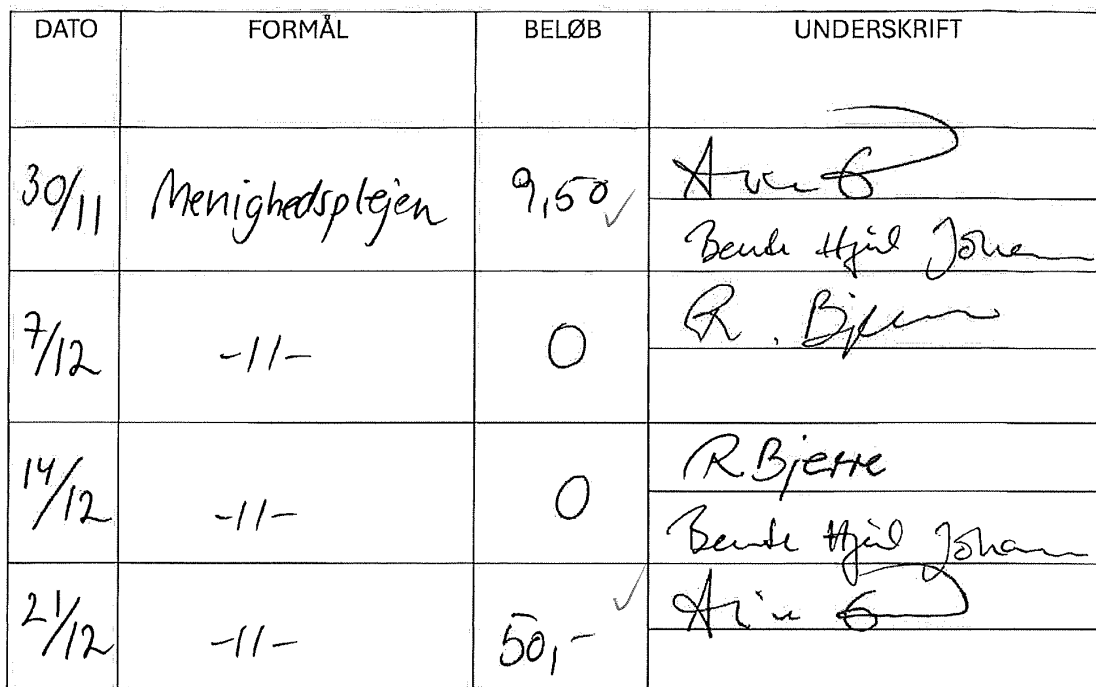 DATO FORMÅL BELØB UNDERSKRIFT
30/11 Menighedsplejen 9,50
Bente Hjul
7/12 -11- 0
R. Bjerre
14/12 -11- 0 R Bjerre
Bente Hjul
21/12 -11- 50,-